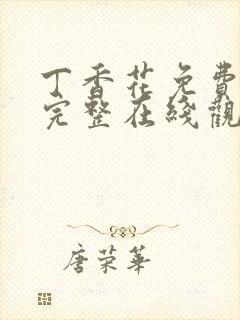 丁香花免費
完整在綫觀
唐荣華